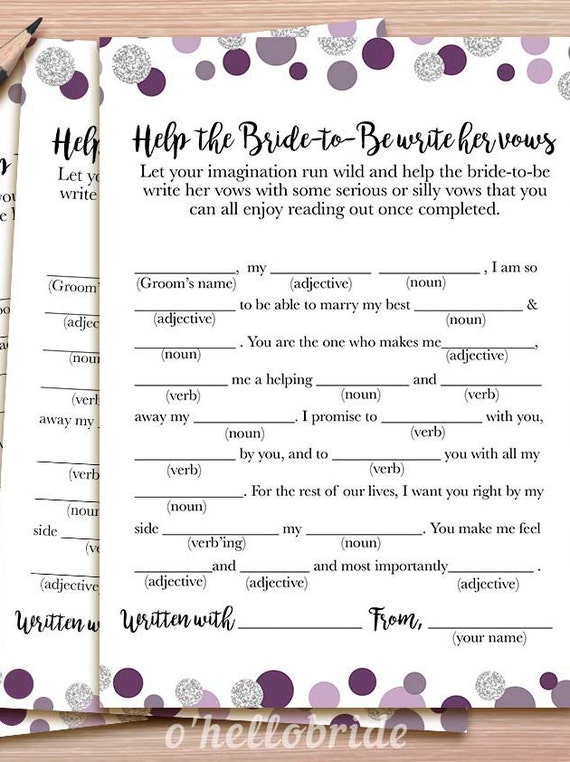 Help the Bride-to-Be write her vows
Let your imagination run wild and help the bride-to-be
write her vows with some serious or silly vows that you
can all enjoy reading out once completed.
____________, my ____________ ____________, I am so
(Groom's name) (adjective) (noun)
____________ to be able to marry my best ____________ &
(adjective) (noun)
____________. You are the one who makes me____________,
(noun) (adjective)
____________ me a helping ____________ and ____________
(verb) (noun) (verb)
away my ____________. I promise to ____________ with you,
(noun) (verb)
____________ by you, and to ____________ you with all my
(verb) (verb)
____________. For the rest of our lives, I want you right by my
(noun)
side ____________ my ____________. You make me feel
(verb'ing) (noun)
____________and ____________ and most importantly____________.
(adjective) (adjective) (adjective)
Written with ____________ From, ____________
(your name)
Help
Let yo
write
(Groom'
(adjec
(noun
(verb
away my
(verb
(noun
side
(ve
(adjective)
Written w
o'hellobride